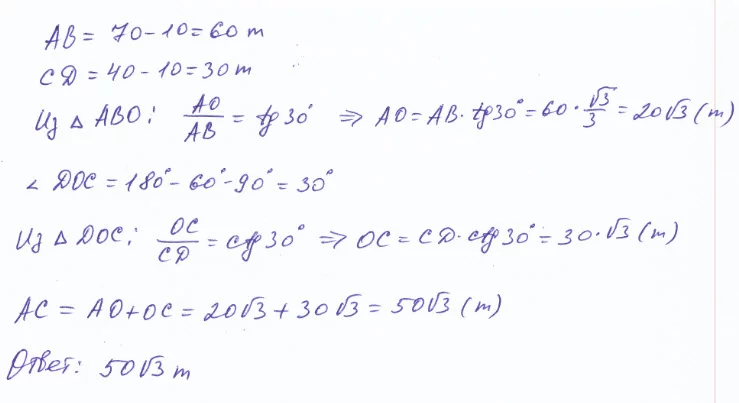 AB = 70-10=60 m
CD = 40-10=30 m
Из Δ ABO: AO/AB = tg 30° ⇒ AO = AB · tg 30° = 60 · √3/3 = 20√3 (m)
∠ DOC = 180° - 60° - 90° = 30°
Из Δ DOC: OC/CD = ctg 30° ⇒ OC = CD · ctg 30° = 30 · √3 (m)
AC = AO+OC = 20√3 + 30√3 = 50√3 (m)
Ответ: 50√3 m